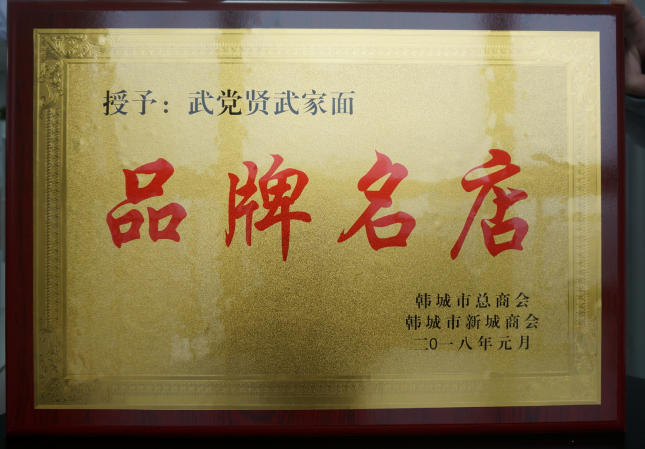 授予：武党贤武家面
品牌名店
韩城市总商会
韩城市新城商会
二0一八年元月